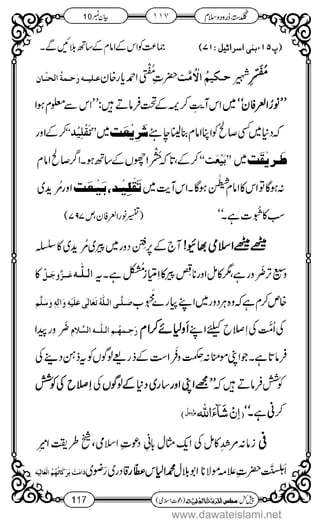 بیان نمبر 10
۱۱۷
گلدستۂ درود و سلام
(پ ۱۵، بنی اسرائیل: ۷۱) جماعت کو اس کے امام کے ساتھ بلائیں گے۔
مُفَسِّرِ شہیر حکیمُ الْاُمَّت حضرتِ مُفْتی احمد یار خان علیہ رحمۃُ الحنّان
’’نورُ العرفان‘‘ میں اس آیتِ کریمہ کے تحت فرماتے ہیں: ’’اس سے معلوم ہوا
کہ دنیا میں کسی صالح کو اپنا امام بنا لینا چاہئے شَرِیْعَت میں ’’تَقْلِیْد‘‘ کر کے اور
طَرِیْقَت میں ’’بَیْعَت‘‘ کر کے، تاکہ حَشْر اچھوں کے ساتھ ہو۔ اگر صالح امام
نہ ہوگا تو اس کا امام شیطٰن ہوگا۔ اس آیت میں تَقْلِیْد، بَیْعَت اور مُریدی
سب کا ثبوت ہے۔‘‘ (تفسیر نور العرفان، ص ۷۹۷)
میٹھے میٹھے اسلامی بھائیو! آج کے پُرفِتن دور میں پیری مُریدی کا سلسلہ
وسیع تر ضرور ہے، مگر کامل اور ناقص پیر کا امتیاز مُشکِل ہے۔ یہ اللہ عَزَّوَجَلَّ کا
خاص کرم ہے کہ وہ ہر دور میں اپنے پیارے محبوب صَلَّی اللہُ تَعَالٰی عَلَیْہِ وَاٰلِہٖ وَسَلَّم
کی اُمَّت کی اِصلاح کیلئے اپنے اولیائے کرام رَحِمَہُمُ اللہُ السَّلام ضَرور پیدا
فرماتا ہے۔ جو اپنی مومنانہ حِکمت و فَراست کے ذریعے لوگوں کو یہ ذہن دینے کی
کوشش فرماتے ہیں کہ ’’مجھے اپنی اور ساری دنیا کے لوگوں کی اِصلاح کی کوشش
کرنی ہے۔‘‘ (اِنْ شَآءَاللہ عَزَّوَجَلَّ)
فی زمانہ مرشدِ کامل کی ایک مثال بانیِ دعوتِ اسلامی، شیخِ طریقت امیرِ
اہلسنّت حضرتِ علامہ مولانا ابو بلال محمد الیاس عطّار قادری رَضَوی دَامَتْ بَرَکَاتُہُمُ الْعَالِیَہ
117
(دعوتِ اسلامی)
www.dawateislami.net